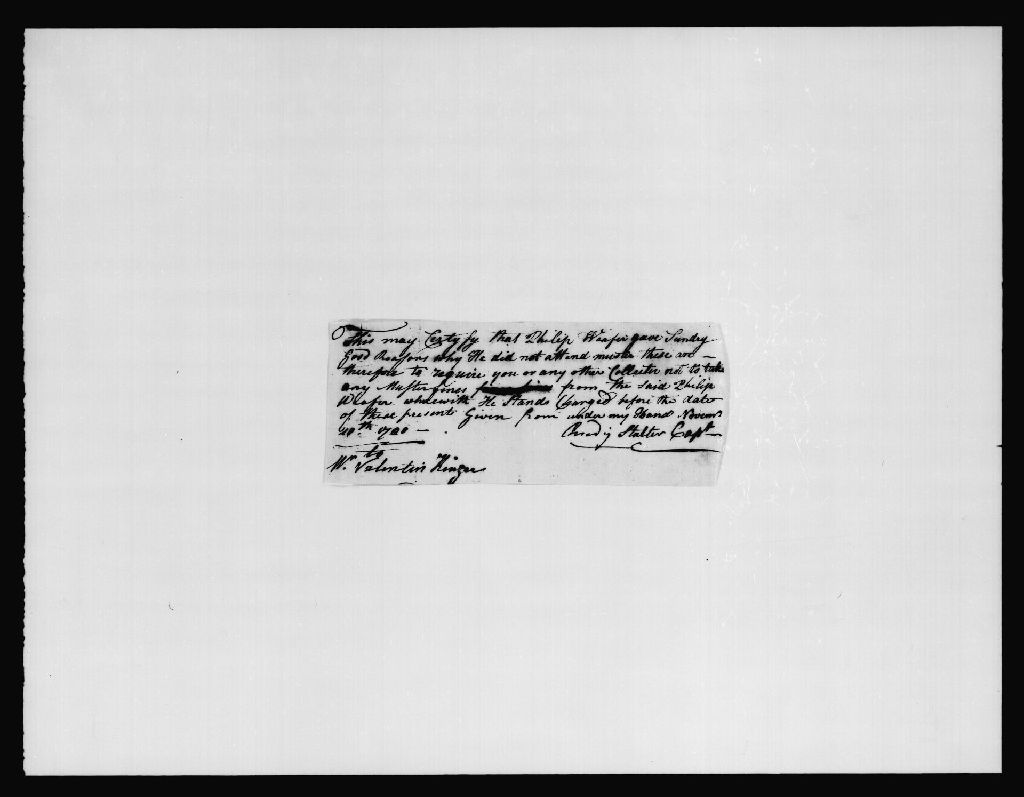 This may Certyfy that Philip Weafer gave Sundry
Good Reasons why He did not attend muster these are
therefore to require you or any other Collecter not to take
any Muster fines from the Said Philip
Weafer wherewith He Stands Charged before the date
of these present Given from under my Hand Novem
to
Valentin